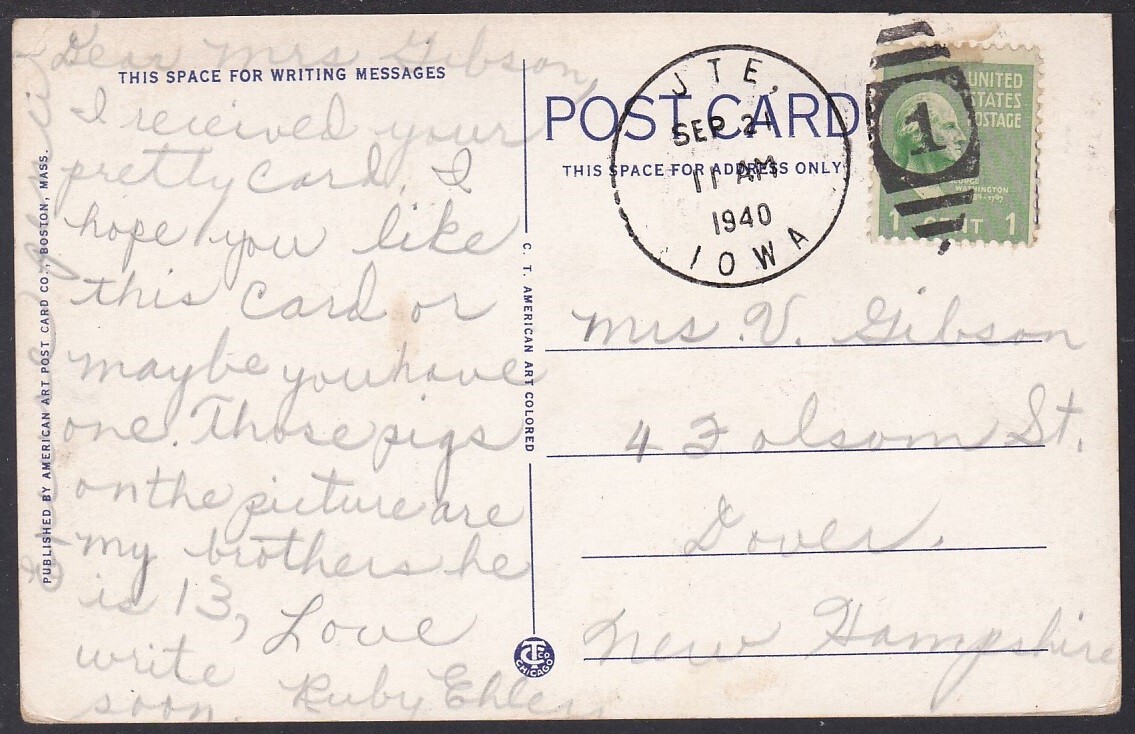 Dear Mrs Gibson,
THIS SPACE FOR WRITING MESSAGES
I received your
pretty card. I
hope you like
this card or
maybe you have
one. Those pigs
on the picture are
my brothers he
is 13, Love
write
soon. Ruby Ehlers
PUBLISHED BY AMERICAN ART POST CARD CO., BOSTON, MASS.
C. T. AMERICAN ART COLORED
CT CO
CHICAGO
POST CARD
THIS SPACE FOR ADDRESS ONLY
J TE,
SEP 21
11 AM
1940
IOWA
1
UNITED
STATES
POSTAGE
WASHINGTON
1 CENT 1
Mrs. V. Gibson
4 Folsom St.
Dover.
New Hampshire